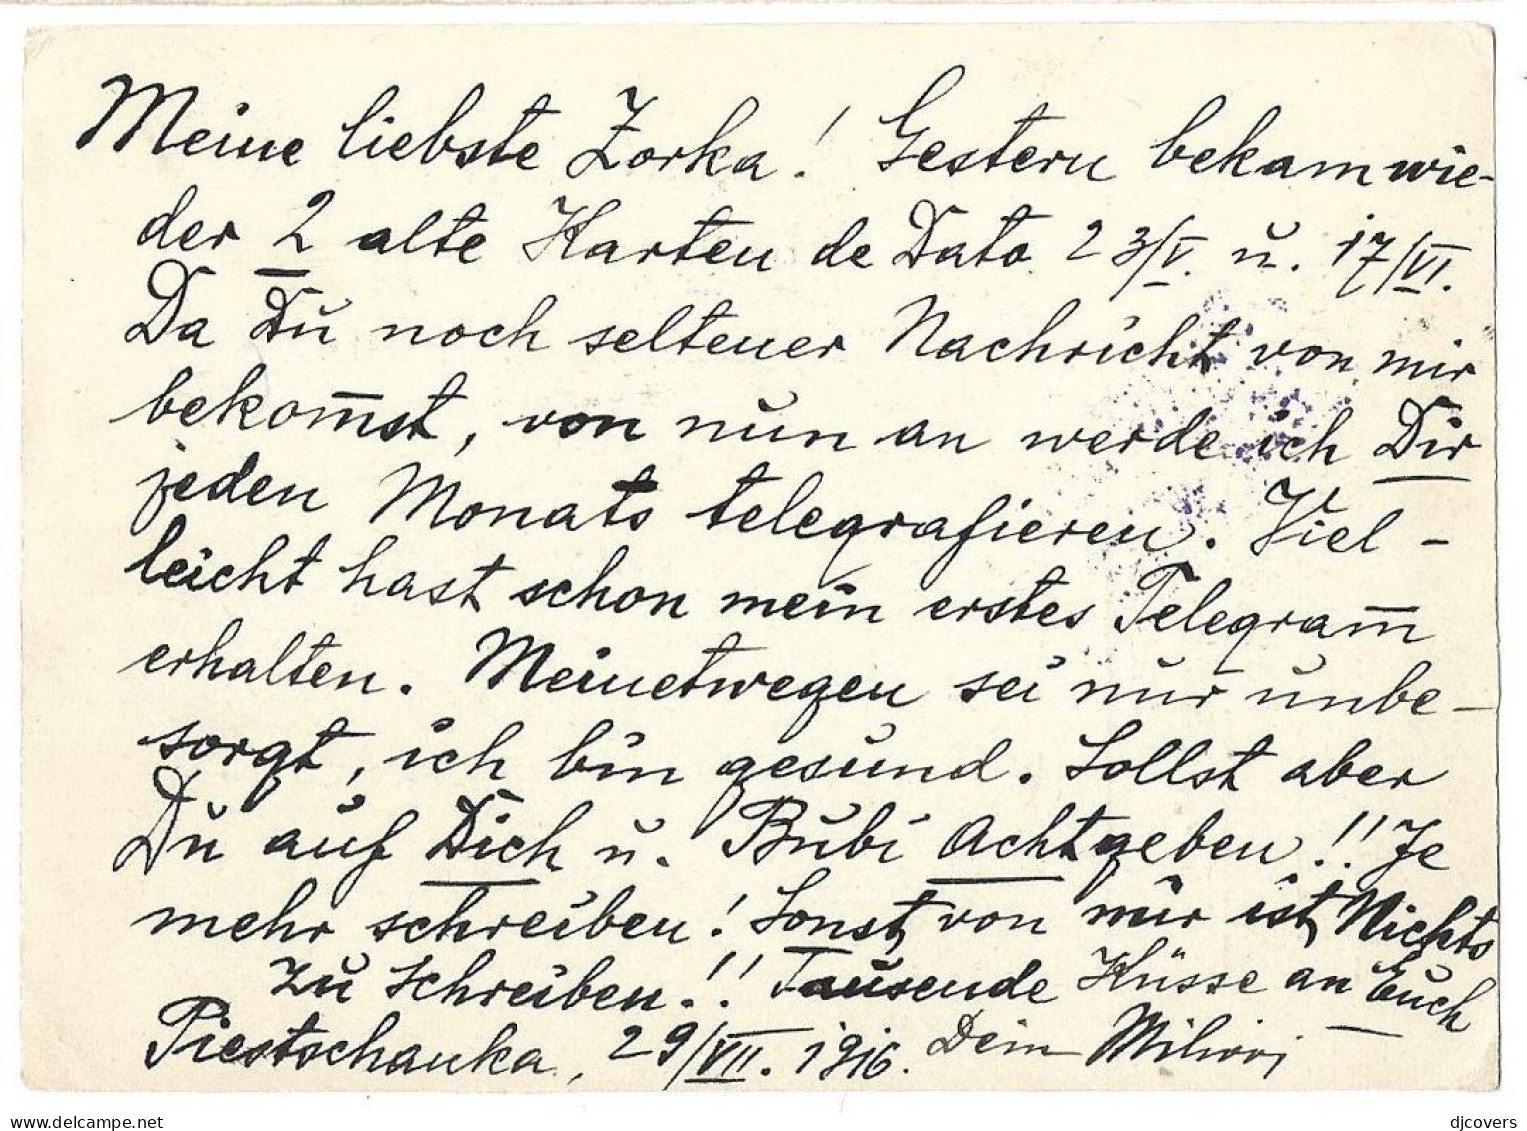 Meine liebste Zorka! Gestern bekam wie-
der 2 alte Karten de Dato 23/V. u. 17/VI.
Da Du noch seltener Nachricht von mir
bekom̅st, von nun an werde ich Dir
jeden Monats telegrafieren. Viel-
leicht hast schon mein erstes Telegram̅
erhalten. Meinetwegen sei nur unbe-
sorgt, ich bin gesund. Sollst aber
Du auf Dich u. Bubi Achtgeben!! Je
mehr schreiben! Sonst von mir ist Nichts
zu schreiben!! Tausende Küsse an Euch
Piestschanka, 29/VII. 1916. Dein
delcampe.net
djcovers